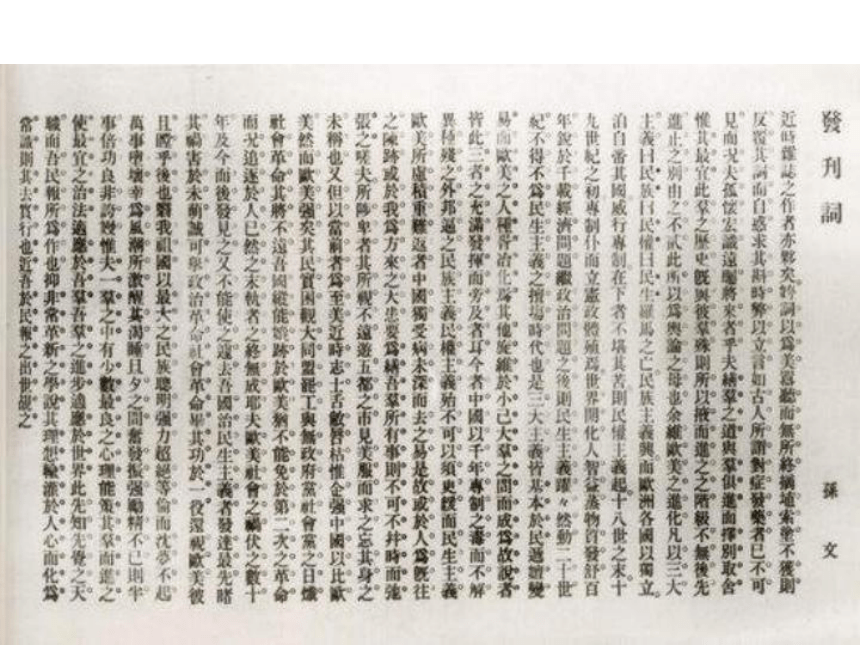 發刊詞
孫文
近時雜誌之作者亦夥矣姱詞以爲美囂聽而無所終摘埴索塗不獲則
反覆其詞而自惑求其斟時弊以立言如古人所謂對症發藥者已不可
見而況夫孤懷宏識遠矚將來者乎夫繕羣之道與羣俱進而擇別取舍
惟其最宜此羣之歷史既與彼羣殊則所以掖而進之之階級不無後先
進止之別由之不貳此所以爲輿論之母也余維歐美之進化凡以三大
主義曰民族曰民權曰民生羅馬之亡民族主義興而歐洲各國以獨立
洎自帝其國威行專制在下者不堪其苦則民權主義起十八世之末十
九世紀之初專制仆而立憲政體殖焉世界開化人智益蒸物質發舒百
年銳於千載經濟問題繼政治問題之後則民生主義躍々然動二十世
紀不得不爲民生主義之擅塲時代也是三大主義皆基本於民遞嬗變
易而歐美之人種胥治化焉其他旋維於小己大羣之間而成爲故說者
皆此三者之充滿發揮而旁及者耳今者中國以千年專制之毒而不解
異種殘之外邦逼之民族主義民權主義殆不可以須臾緩而民生主義
歐美所慮積重難返者中國獨受病未深而去之易是故或於人爲既往
之陳跡或於我爲方來之大患要爲繕吾羣所有事則不可不並時而弛
張之嗟夫所陟卑者其所視不遠遊五都之市見美服而求之忘其身之
未稱也又但以當前者爲至美近時志士舌敝唇枯惟企强中國以比歐
美然而歐美强矣其民實困觀大同盟罷工與無政府黨社會黨之日熾
社會革命其將不遠吾國縱能媲跡於歐美猶不能免於第二次之革命
而況追逐於人已然之末軌者之終無成耶夫歐美社會之禍伏之數十
年及今而後發見之又不能使之遽去吾國治民生主義者發達最先睹
其禍害於未萌誠可舉政治革命社會革命畢其功於一役還視歐美彼
且瞠乎後也翳我祖國以最大之民族聰明强力超絕等倫而沈夢不起
萬事墮壞幸爲風潮所激醒其渴睡旦夕之間奮發振强勵精不已則半
事倍功良非誇嫚惟夫一羣之中有少數最良之心理能策其羣而進之
使最宜之治法適應於吾羣吾羣之進步適應於世界此先知先覺之天
職而吾民報所爲作也抑非常革新之學說其理想輸灌於人心而化爲
常識則其去實行也近吾於民報之出世覘之